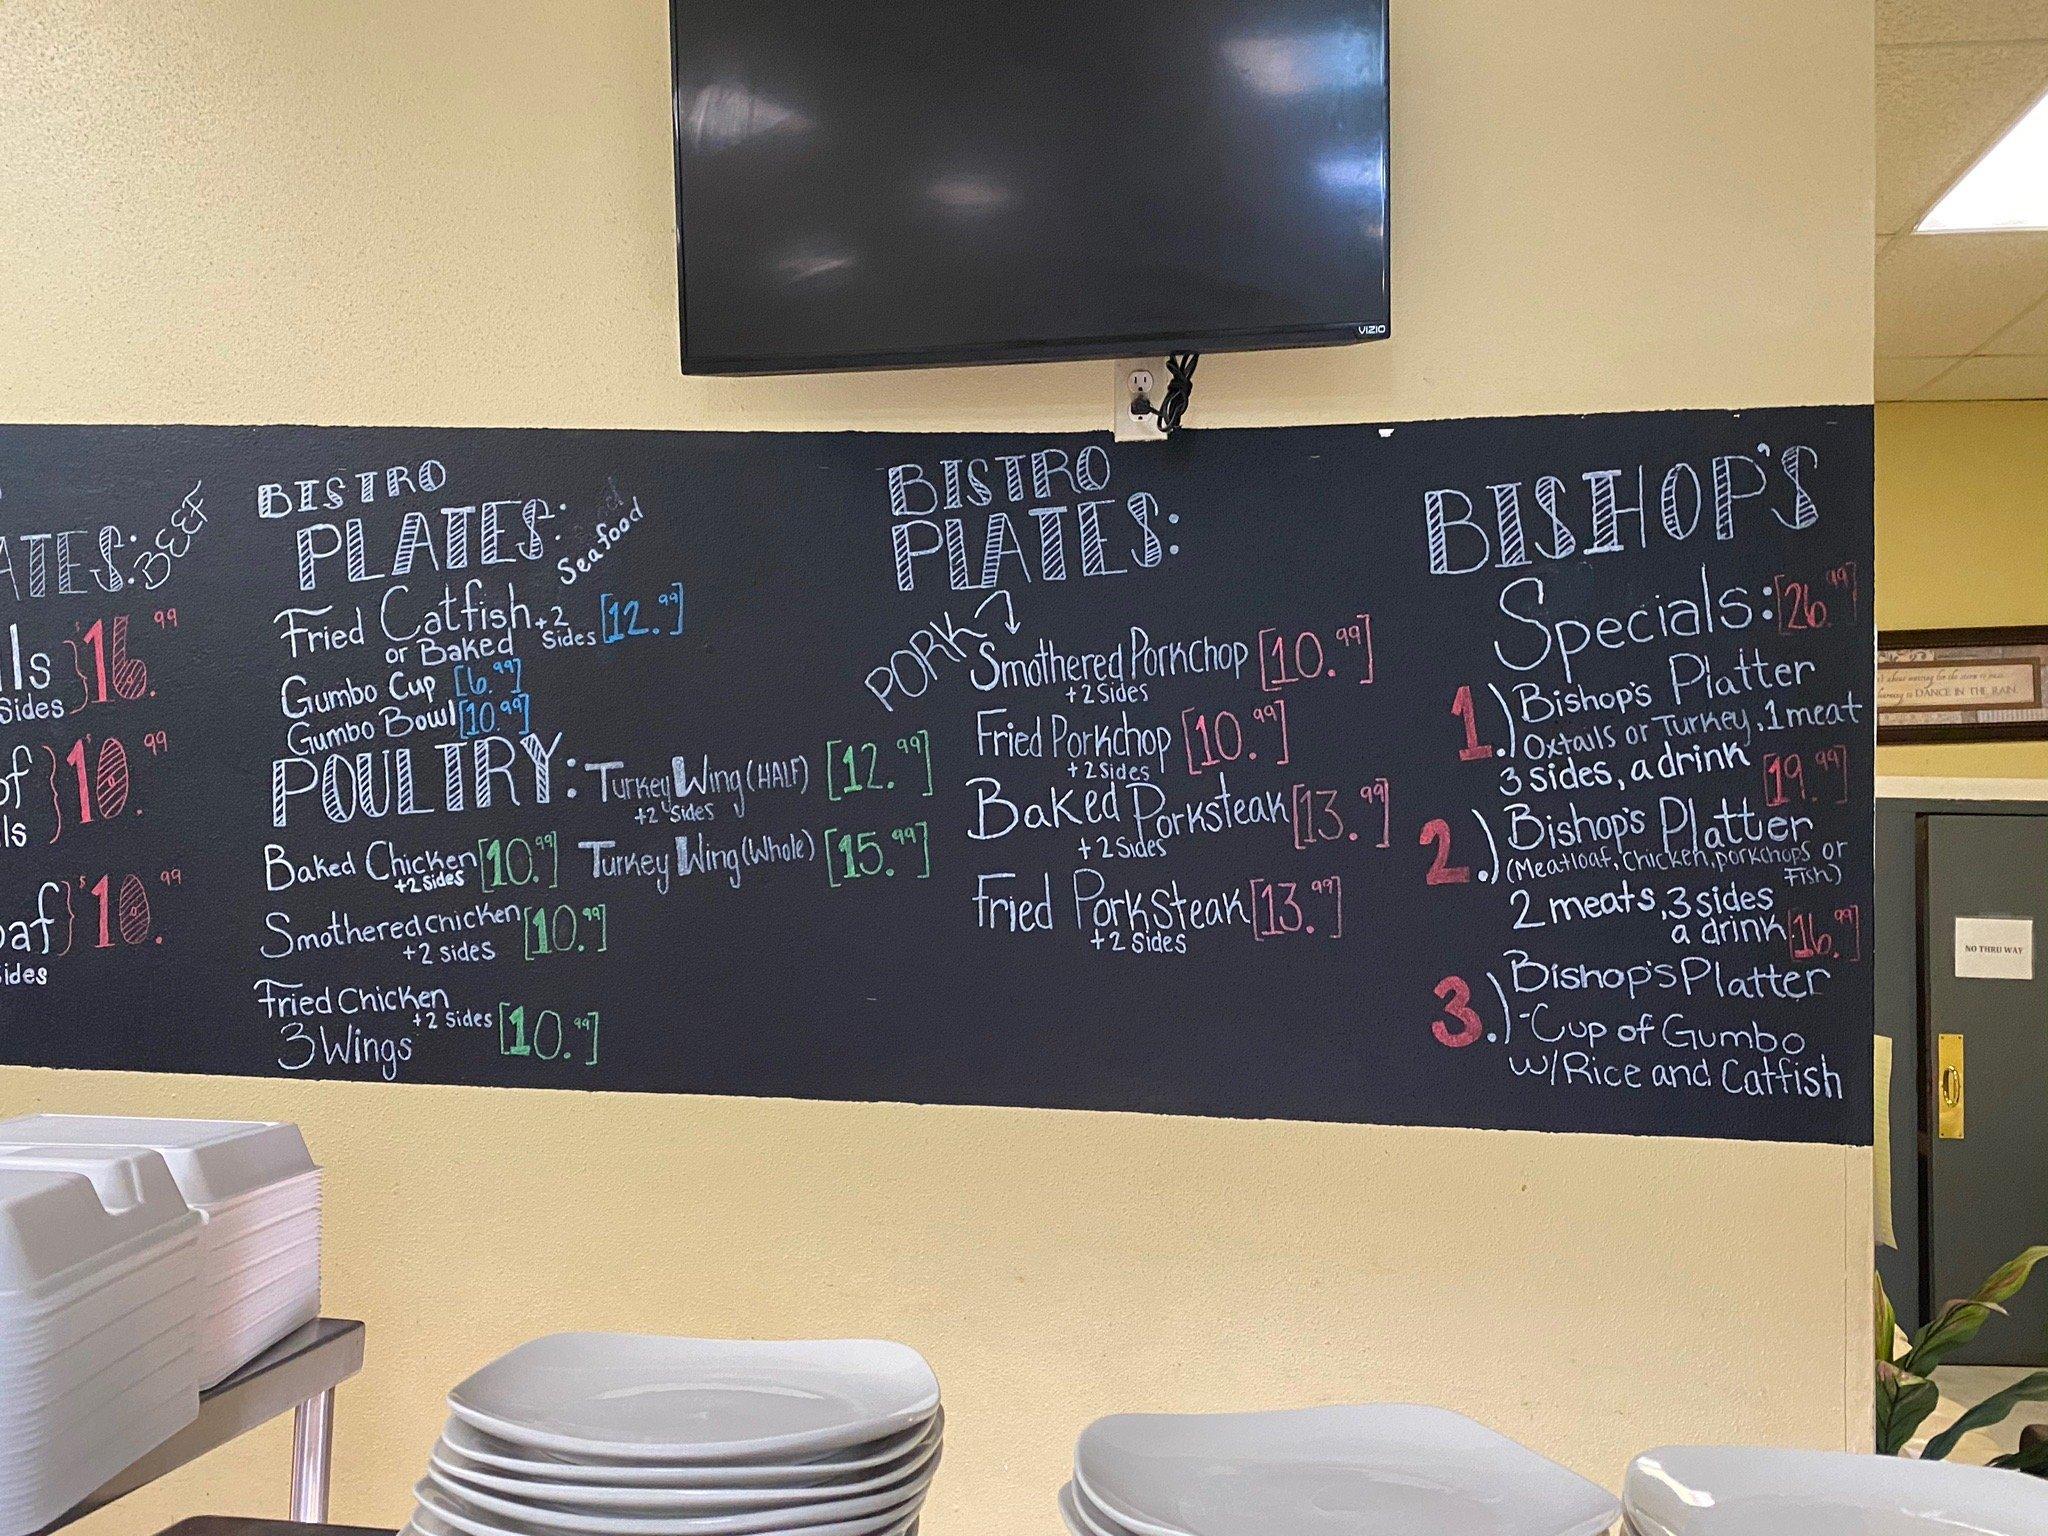 VIZIO
BEEF
16.99
Sides
10.99
10.99
BISTRO
PLATES:
Seafood
Fried Catfish +2 Sides [12.99]
or Baked
Gumbo Cup [6.99]
Gumbo Bowl [10.99]
POULTRY:
Baked Chicken [10.99]
+2 sides
Smothered chicken [10.99]
+2 sides
Fried Chicken
+2 sides [10.99]
3 Wings
Turkey Wing (HALF) [12.99]
+2 Sides
Turkey Wing (Whole) [15.99]
BISTRO
PLATES:
PORK
Smothered Porkchop [10.99]
+2 Sides
Fried Porkchop [10.99]
+2 Sides
Baked Porksteak [13.99]
+2 Sides
Fried Porksteak [13.99]
+2 Sides
BISHOP'S
Specials: [26.99]
1.) Bishop's Platter
Oxtails or Turkey, 1 meat
3 sides, a drink [19.99]
2.) Bishop's Platter
(Meatloaf, Chicken, porkchops or
Fish)
2 meats, 3 sides
a drink [16.99]
3.) Bishop's Platter
-Cup of Gumbo
w/Rice and Catfish
DANCE IN THE RAIN
NO THRU WAY